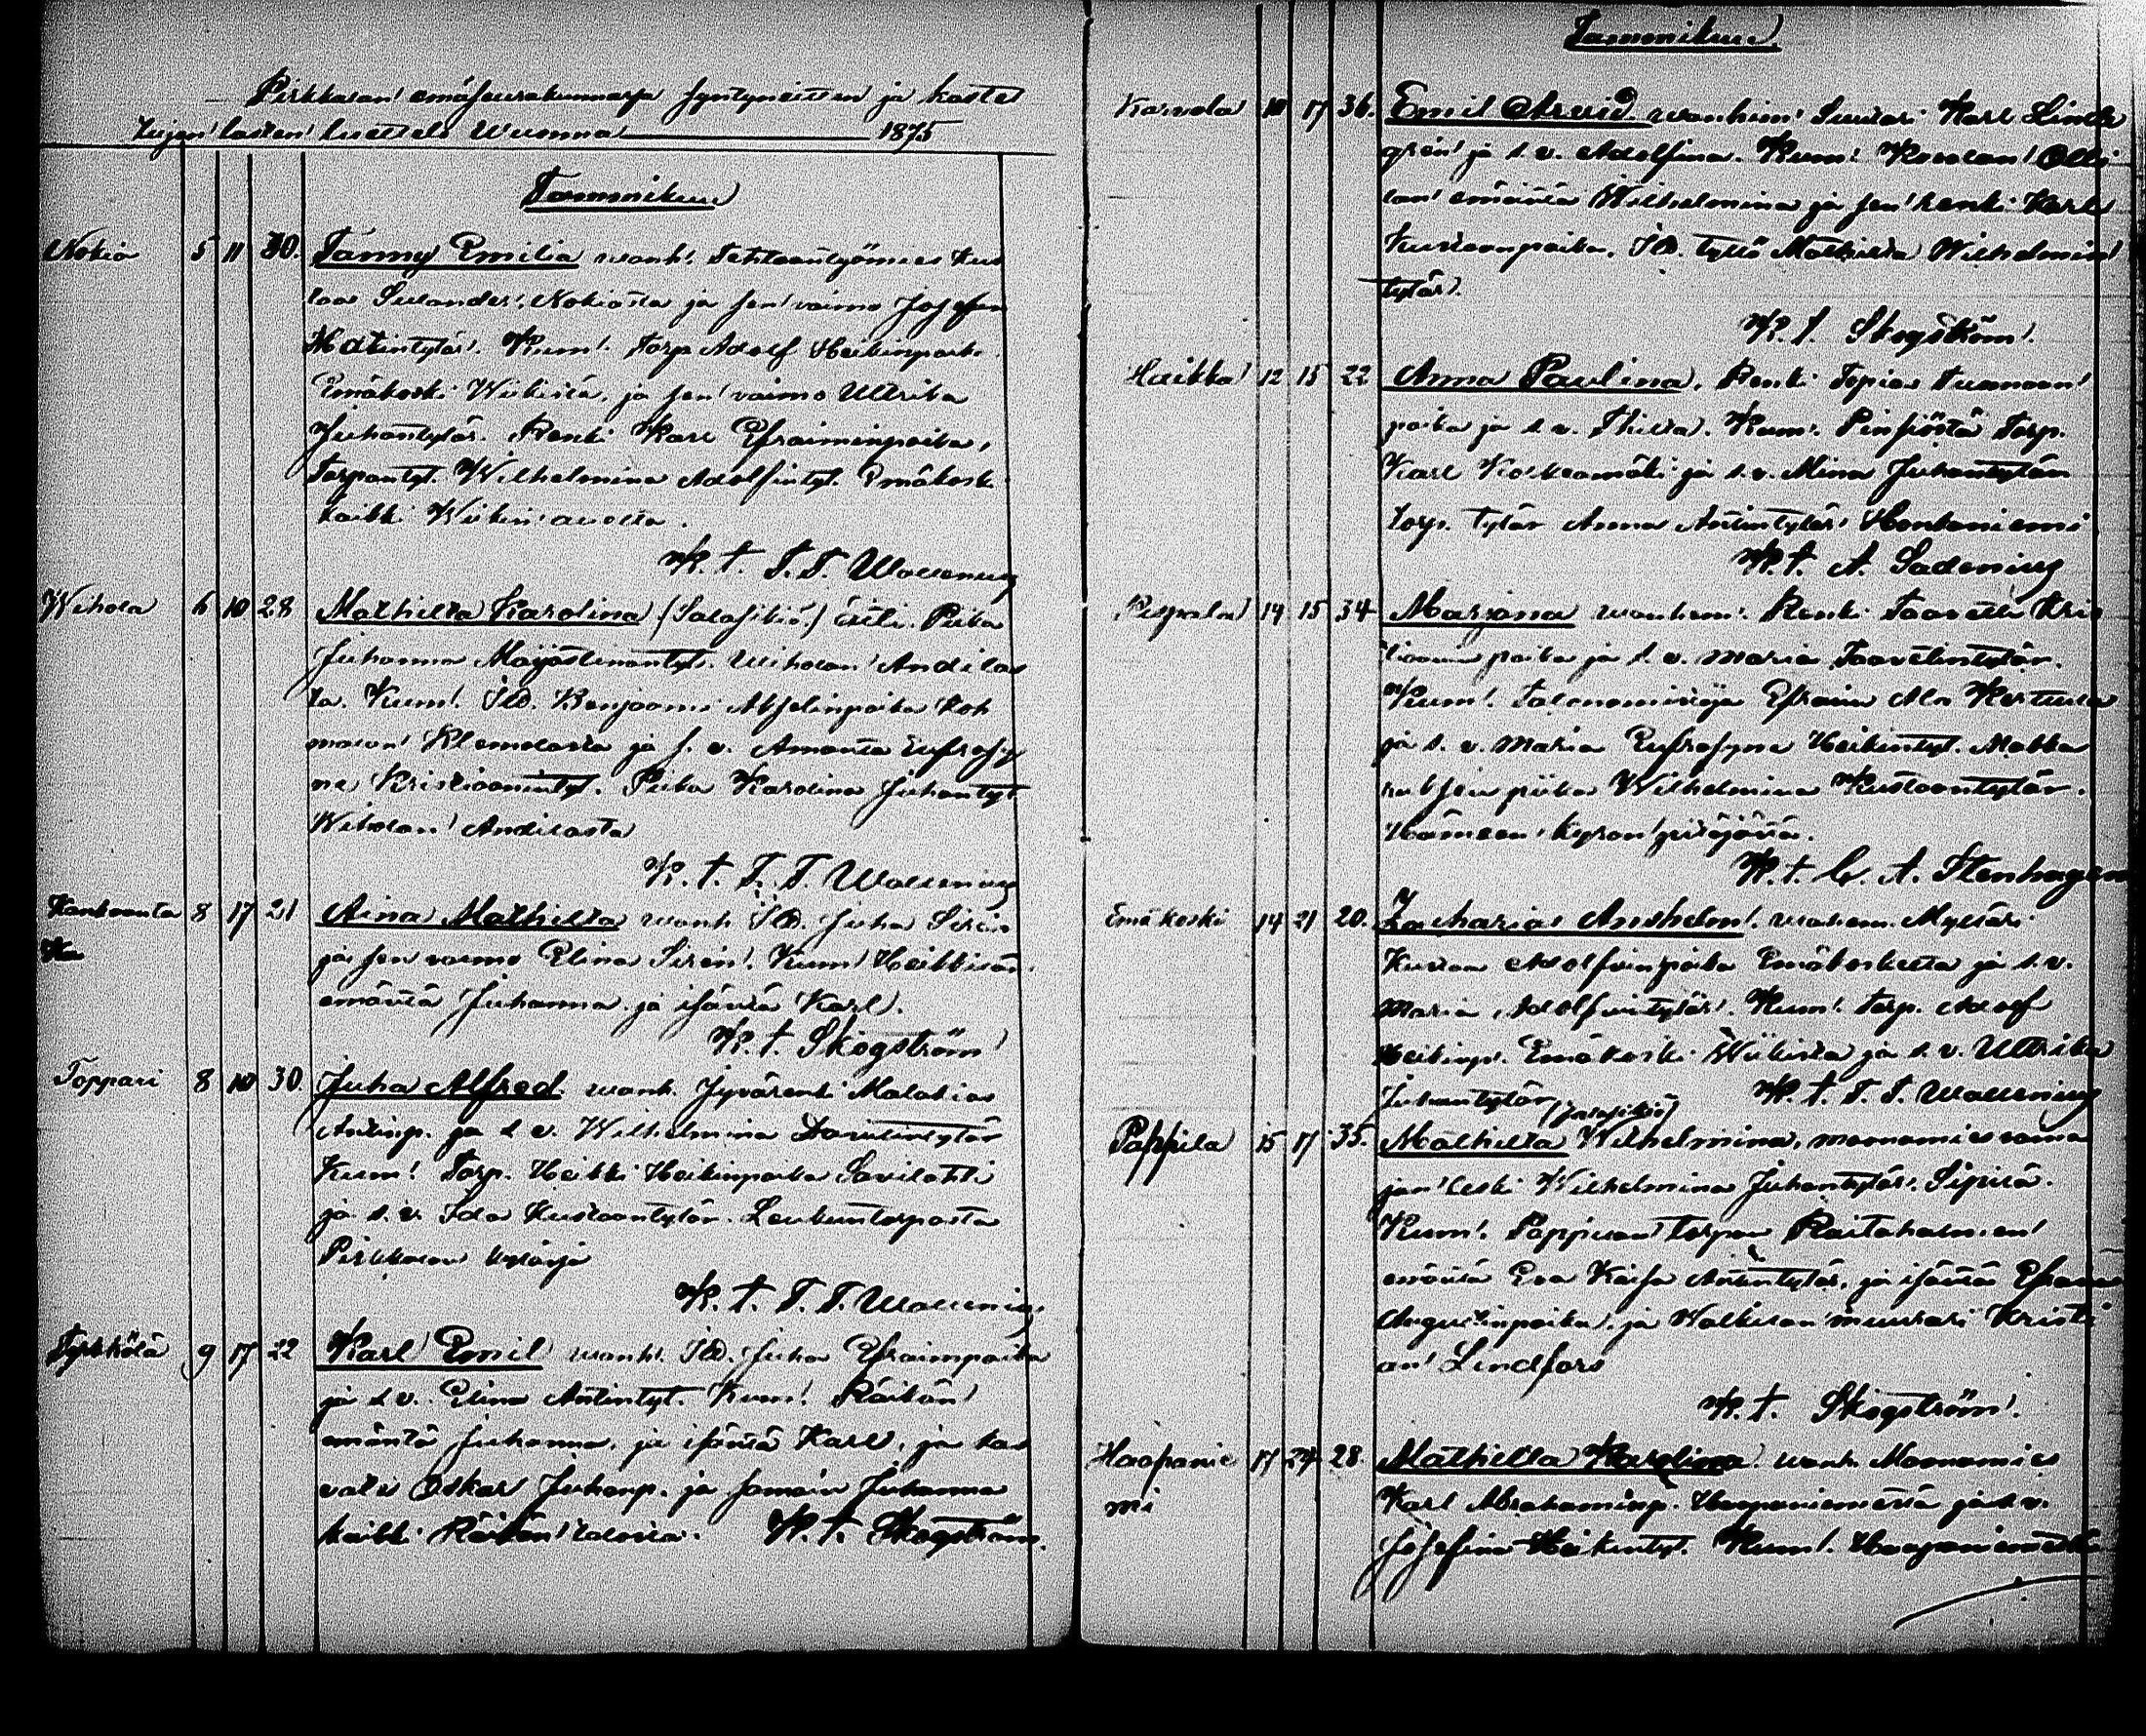 Pirkkalan emäseurakunnassa syntyneitten ja kastet
tujen lasten luettelo Wuonna 1875
Tammikuu
Nokia 5 11 30. Fanny Emilia wanh. Tehtaantyömies Kus
taa Sulander, Nokiasta ja sen vaimo Josefa
Matintytär. Kum. Torp. Adolf Heikinpoika
Emäkoski Wiikistä, ja sen vaimo Ullrika
Juhantytär. Renki Karl Efraiminpoika,
Torpantyt. Wilhelmina Adolfintyt. Emäkoski
kaikki Wiikin
K. t. F. F. Wallenius
Wihola 6 10 28 Mathilda Karolina (Salasikiö) äiti. Piika
Juhanna Majastinantyt. Wiholan Andilas
ta. Kum. Itd. Benjaami Akselinpoika Koh
malan Klemolasta ja s. v. Amanta Eufrosy
ne Kristiaanintyt. Piika Karolina Juhantyt
Wiholan Andilasta
K. t. F. F. Wallenius
Kankaanta 8 17 21 Aina Mathilda wanh. Itd. Juha Siren
ka
ja sen vaimo Elina Siren. Kum. Heikkilän
emäntä Juhanna ja isäntä Karl.
K. t. Skogström
Toppari 8 10 30. Juha Alfred wanh. Jyvärenki Malakias
Antinp. ja s. v. Wilhelmina Davidintytär
Kum. Torp. Heikki Heikinpoika Savilahti
ja s. v. Ida Kustaantytär. Leukuntorpasta
Pirkkalan kylässä
K. t. F. F. Wallenius
Tyrkkölä 9 17 22 Karl Emil wanh. Itd. Juha Efraimpoika
ja s. v. Elina Antintyt. Kum. Räikän
emäntä Juhanna, ja isäntä Karl, ja kas
vatti Oskar Juhanp. ja Juhanna
kaikki Räikän talosta. K. t. Skogström.
Tammikuu.
Korvola 10 17 36. Emil Arvid. wanhim. Suutari Karl Lind
gren ja s. v. Adolfina. Kum. Olli
lan emäntä Wilhelmina ja sen renki Karl
Kustaanpoika. Itd. tyttö Mathilda Wilhelmin
tytär.
K. t. Skogström.
Haikka 12 15 22 Anna Paulina. Renki Topias Tuomaan
poika ja s. v. Thilda. Kum. Pinsiöstä Torp.
Karl Koskeamäki ja s. v. Mina Juhantytär
torp. tytär Anna Antintytär Honkaniemi
K. t. A. Sadenius
Pispala 14 15 34 Marjana wanhem. Renki Taavetti Kris
tiaanin poika ja s. v. Maria Taavetintytär.
Kum. Talonomistaja Efraim Ala Kertula
ja s. v. Maria Eufrosyna Heikintyt. Makka
piika Wilhelmina Kustaantytär.
Hämeen kyrön pitäjästä.
K. t. C. A. Stenhagen
Emäkoski 14 21 20. Zacharias Anshelm. wanhem. Mylläri
Kustaa Adolfinpoika Emäkoskelta ja s. v.
Maria Adolfintytär. Kum. torp. Adolf
Heikinp. Emäkoski Wiikistä ja s. v. Ullrika
Juhantytär K. t. F. F. Wallenius
(salasikiö)
Pappila 15 17 35. Mathilda Wilhelmina, maanamies vaina
jan leski Wilhelmina Juhantytär. Sipilä.
Kum. Pappilan torpan Raitaholmien
emäntä Eva Kaisa Antintytär, ja isäntä Efraim
Augustinpoika, ja Walkilan muurari Kristi
an Lindfors
K. t. Skogström.
Haapanie 17 24 28. Mathilda Karolina. wanh. Maanamies
mi
Karl Abrahaminp. Haapaniemessä ja s. v.
Josefina Heikintyt. Kum. Haapaniemestä